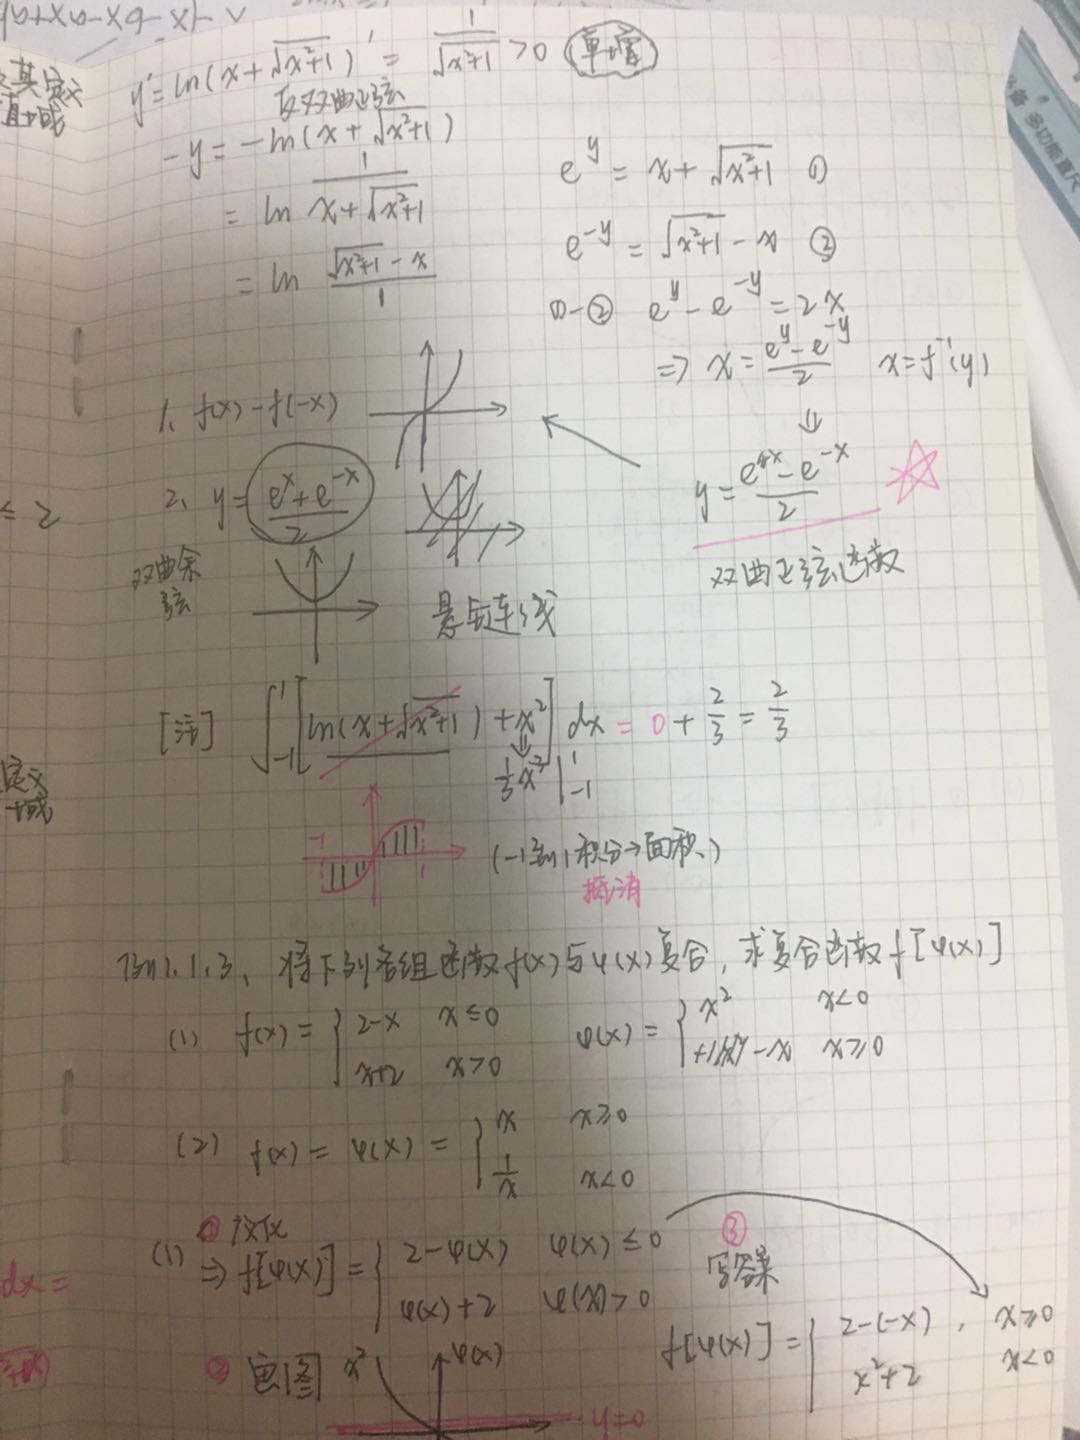 y' = ln(x+√(x²+1))' = 1/√(x²+1) > 0 单增
反双曲正弦
-y = -ln(x+√(x²+1))
= ln 1/(x+√(x²+1))
= ln (√(x²+1) - x)/1
e^y = x+√(x²+1) ①
e^-y = √(x²+1) - x ②
①-② e^y - e^-y = 2x
⇒ x = (e^y - e^-y)/2 x = f⁻¹(y)
⇓
y = (e^x - e^-x)/2
双曲正弦函数
1、f(x) - f(-x)
2、y = (e^x + e^-x)/2
双曲余弦
悬链线
[注] ∫₋₁¹ [ln(x+√(x²+1)) + x²] dx = 0 + 2/3 = 2/3
⇓
1/3 x³ |₋₁¹
-1 1
(-1到1积分→面积)
抵消
例1.1.3、将下列各组函数f(x)与φ(x)复合,求复合函数f[φ(x)]
(1) f(x) = { 2-x x≤0
x+2 x>0
φ(x) = { x² x<0
-x x≥0
(2) f(x) = φ(x) = { x x≥0
1/x x<0
① 汉化
(1) ⇒ f[φ(x)] = { 2-φ(x) φ(x)≤0
φ(x)+2 φ(x)>0
③
写答案
f[φ(x)] = { 2-(-x), x≥0
x²+2 x<0
② 画图 x² φ(x)
y=0
其定义
定义
域
≤2
dx =
多功能直尺